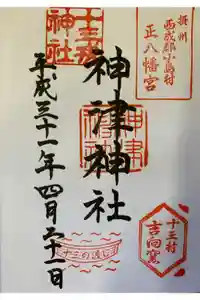 摂州
西成郡小島村
正八幡宮
神津神社
平成三十一年四月二十一日
十三戎
神社
十三の渡し
十三村
吉向窯